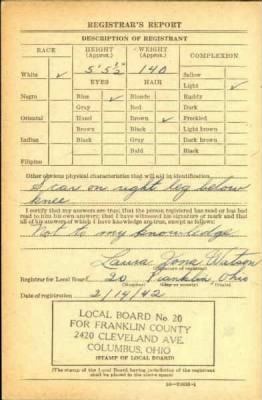 REGISTRAR'S REPORT
DESCRIPTION OF REGISTRANT
RACE HEIGHT (Approx.) WEIGHT (Approx.) COMPLEXION
5' 5½" 140 Sallow
White ✓ EYES HAIR Light ✓
Negro Blue ✓ Blonde Ruddy
Gray Red Dark
Oriental Hazel Brown ✓ Freckled
Brown Black Light brown
Indian Black Gray Dark brown
Bald Black
Filipino
Other obvious physical characteristics that will aid in identification
Scar on right leg below
knee
I certify that my answers are true; that the person registered has read or has had
read to him his own answers; that I have witnessed his signature or mark and that
all of his answers of which I have knowledge are true, except as follows:
Not to my knowledge
Laura Watson
(Signature of registrar)
Registrar for Local Board 20 Franklin Ohio
(Number) (City or county) (State)
Date of registration 2/14/42
LOCAL BOARD No. 20
FOR FRANKLIN COUNTY
2420 CLEVELAND AVE.
COLUMBUS, OHIO
(STAMP OF LOCAL BOARD)
(The stamp of the Local Board having jurisdiction of the registrant
shall be placed in the above space.)